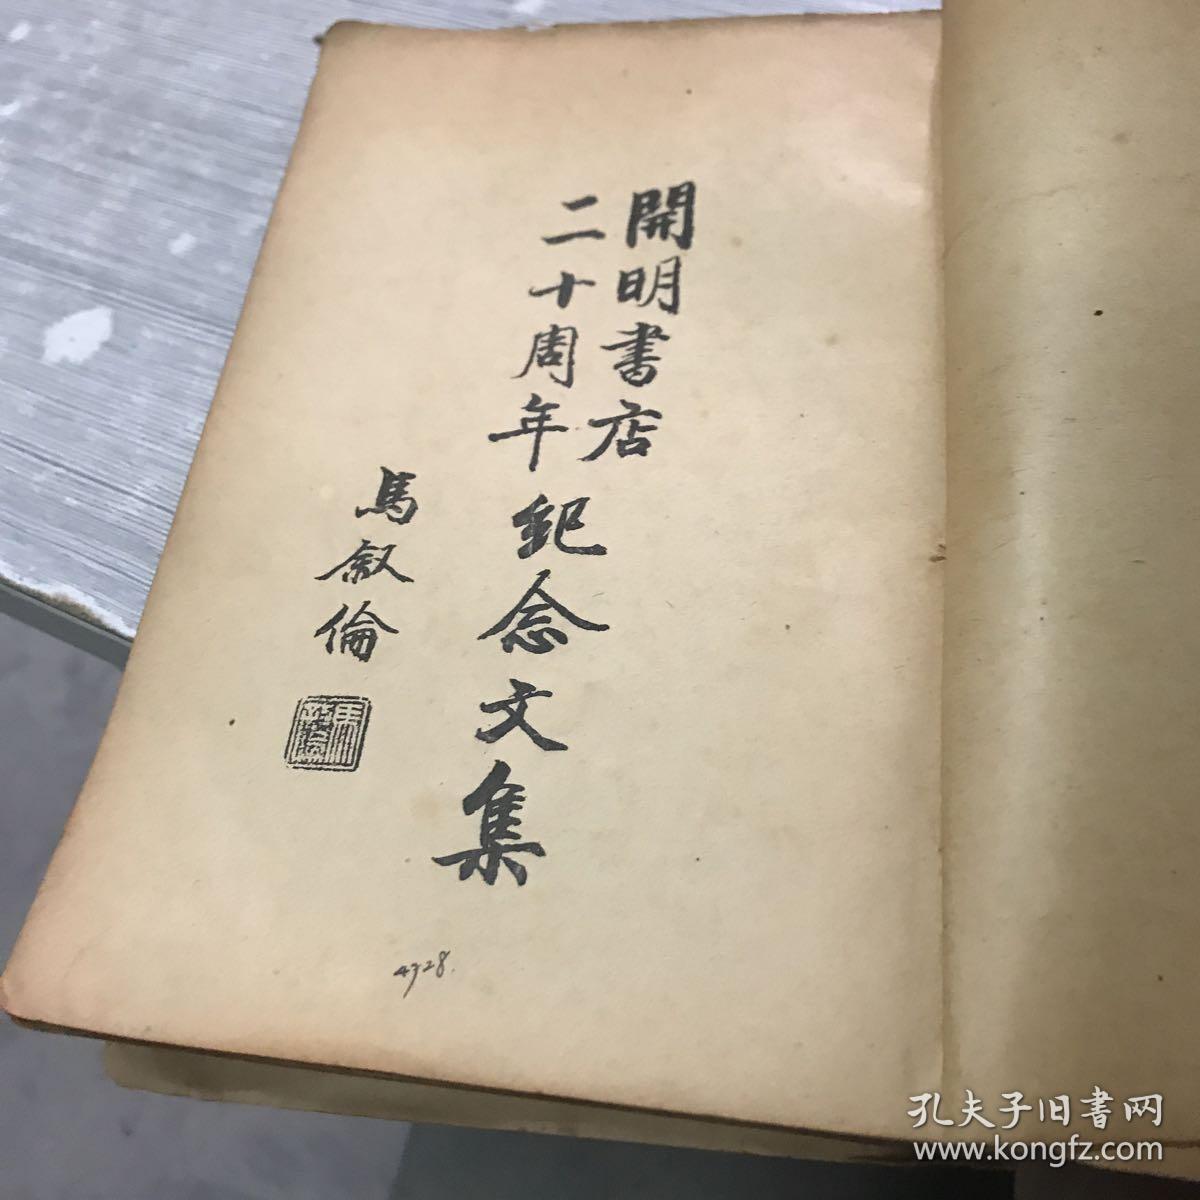 開明書店
二十周年紀念文集
馬叙倫
孔夫子旧書网
www.kongfz.com